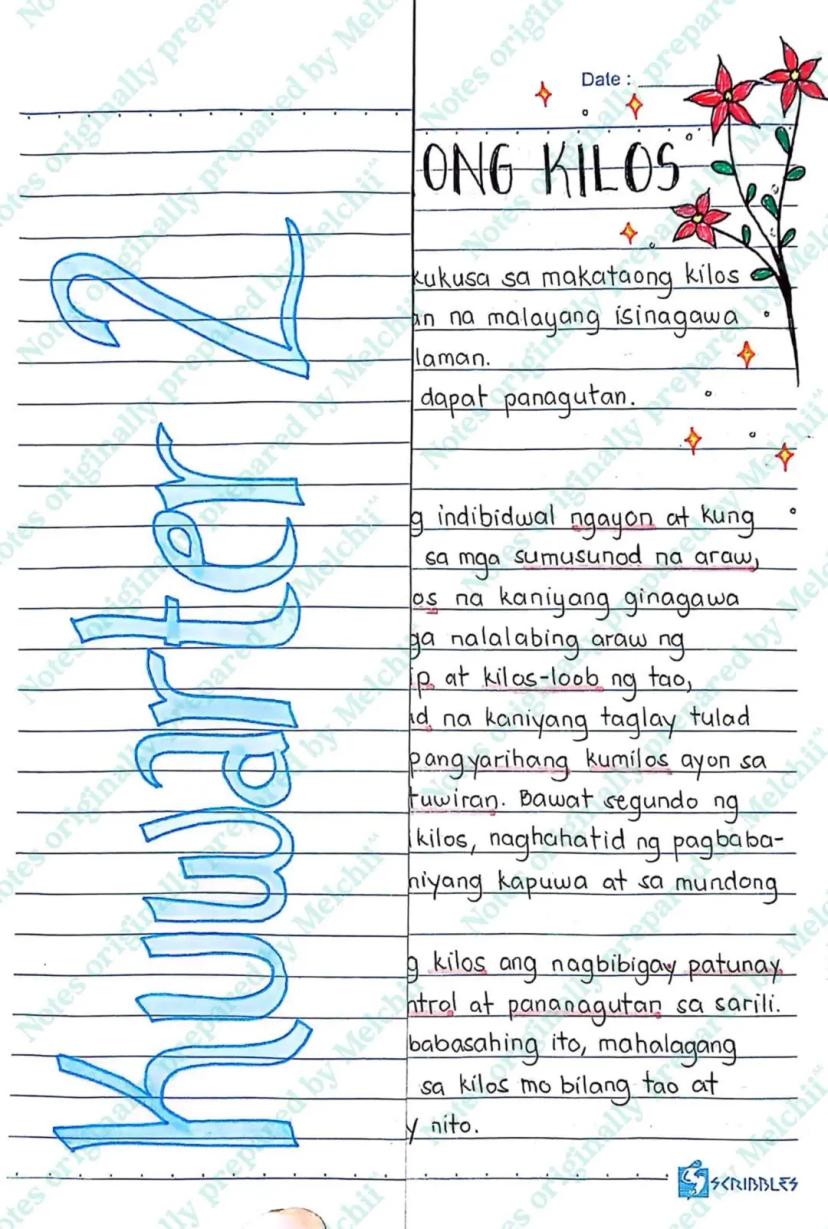 Kuwarter 2
Date :
ONG KILOS
kukusa sa makataong kilos
an na malayang isinagawa
laman.
dapat panagutan.
g indibidwal ngayon at kung
sa mga sumusunod na araw,
os na kaniyang ginagawa
ga nalalabing araw ng
ip at kilos-loob ng tao,
ad na kaniyang taglay tulad
pangyarihang kumilos ayon sa
tuwiran. Bawat segundo ng
kilos, naghahatid ng pagbaba-
niyang kapuwa at sa mundong
g kilos ang nagbibigay patunay
ntrol at pananagutan sa sarili.
babasahing ito, mahalagang
sa kilos mo bilang tao at
y nito.
SCRIBBLES
Notes originally prepared by Melchii